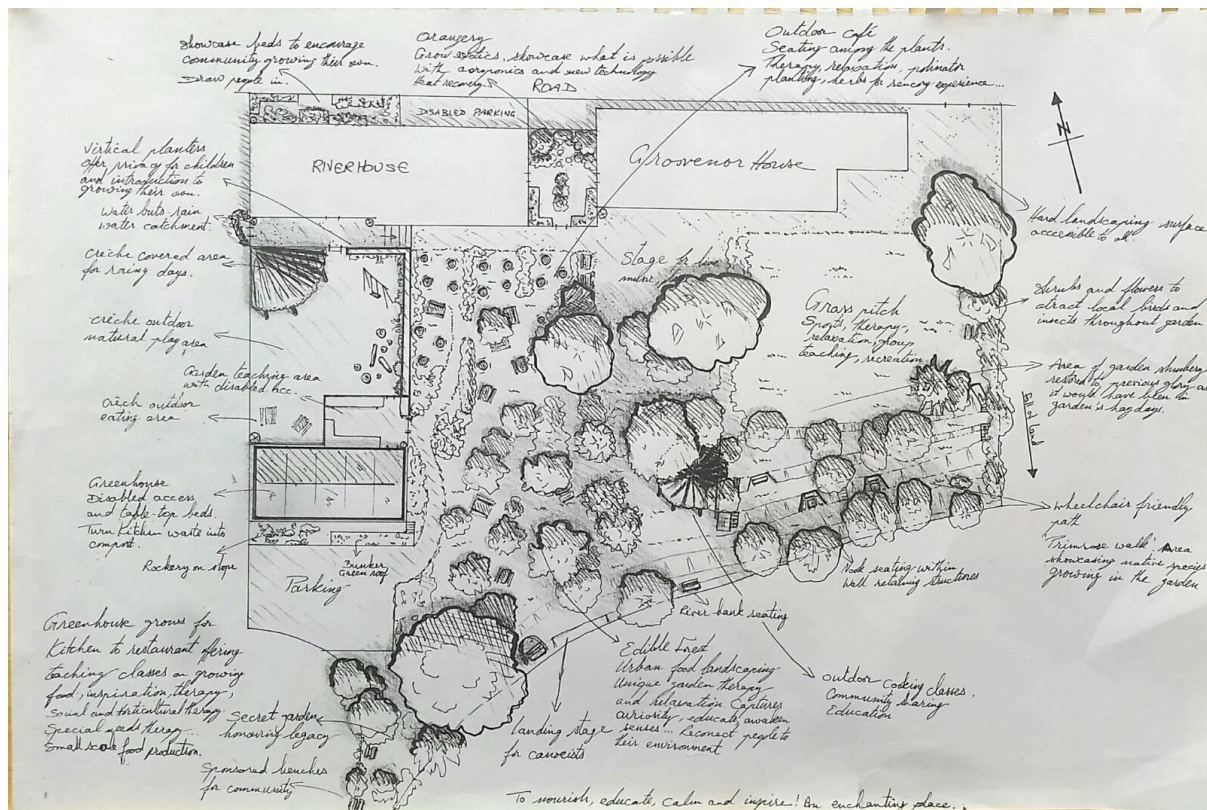 Showcase beds to encourage
community growing their own.
Draw people in.
Orangery
Grow exotics, showcase what is possible
with aergronics and new technology
Heat recovery.
Outdoor café
Seating among the plants.
Therapy, relaxation, polinator
planting, herbs for sensory experience...
ROAD
DISABLED PARKING
N
RIVERHOUSE
Groovenor House
Vertical planters
offer privacy for children
and introduction to
growing their own.
Water buts rain
water catchment.
Crèche covered area
for rainy days.
Crèche outdoor
natural play area
Garden teaching area
with disabled acc.
Crèch outdoor
eating area
Greenhouse
Disabled access
and table-top beds.
Turn Kitchen waste into
compost.
Rockery on slope
Bunker
Green roof
Parking
Stage for live
music
Grass pitch
Sports, therapy,
relaxation, group
teaching, recreation
Hard landscaping surface
accesible to all.
Shrubs and flowers to
atract local birds and
insects throughout garden
Area of garden shrubery
restored to previous glory as
it would have been in
garden's haydays.
Fall of land
Wheelchair friendly
path
Primrose walk Area
showcasing native species
growing in the garden
Nook seating within
wall retaining structures
River bank seating
Greenhouse grows for
Kitchen to restaurant offering
teaching classes on growing
food, inspiration, therapy,
Social and horticultural therapy.
Special needs therapy...
Small scale food production.
Secret garden
honouring legacy
Sponsored benches
for community
Landing stage
for canoeists
Edible Forest
Urban food landscaping
Unique garden therapy
and relaxation Captures
curiosity, educate, awaken
senses... Reconect people to
their environment
Outdoor cooking classes.
Community sharing
Education
To nourish, educate, calm and inspire! An enchanting place.